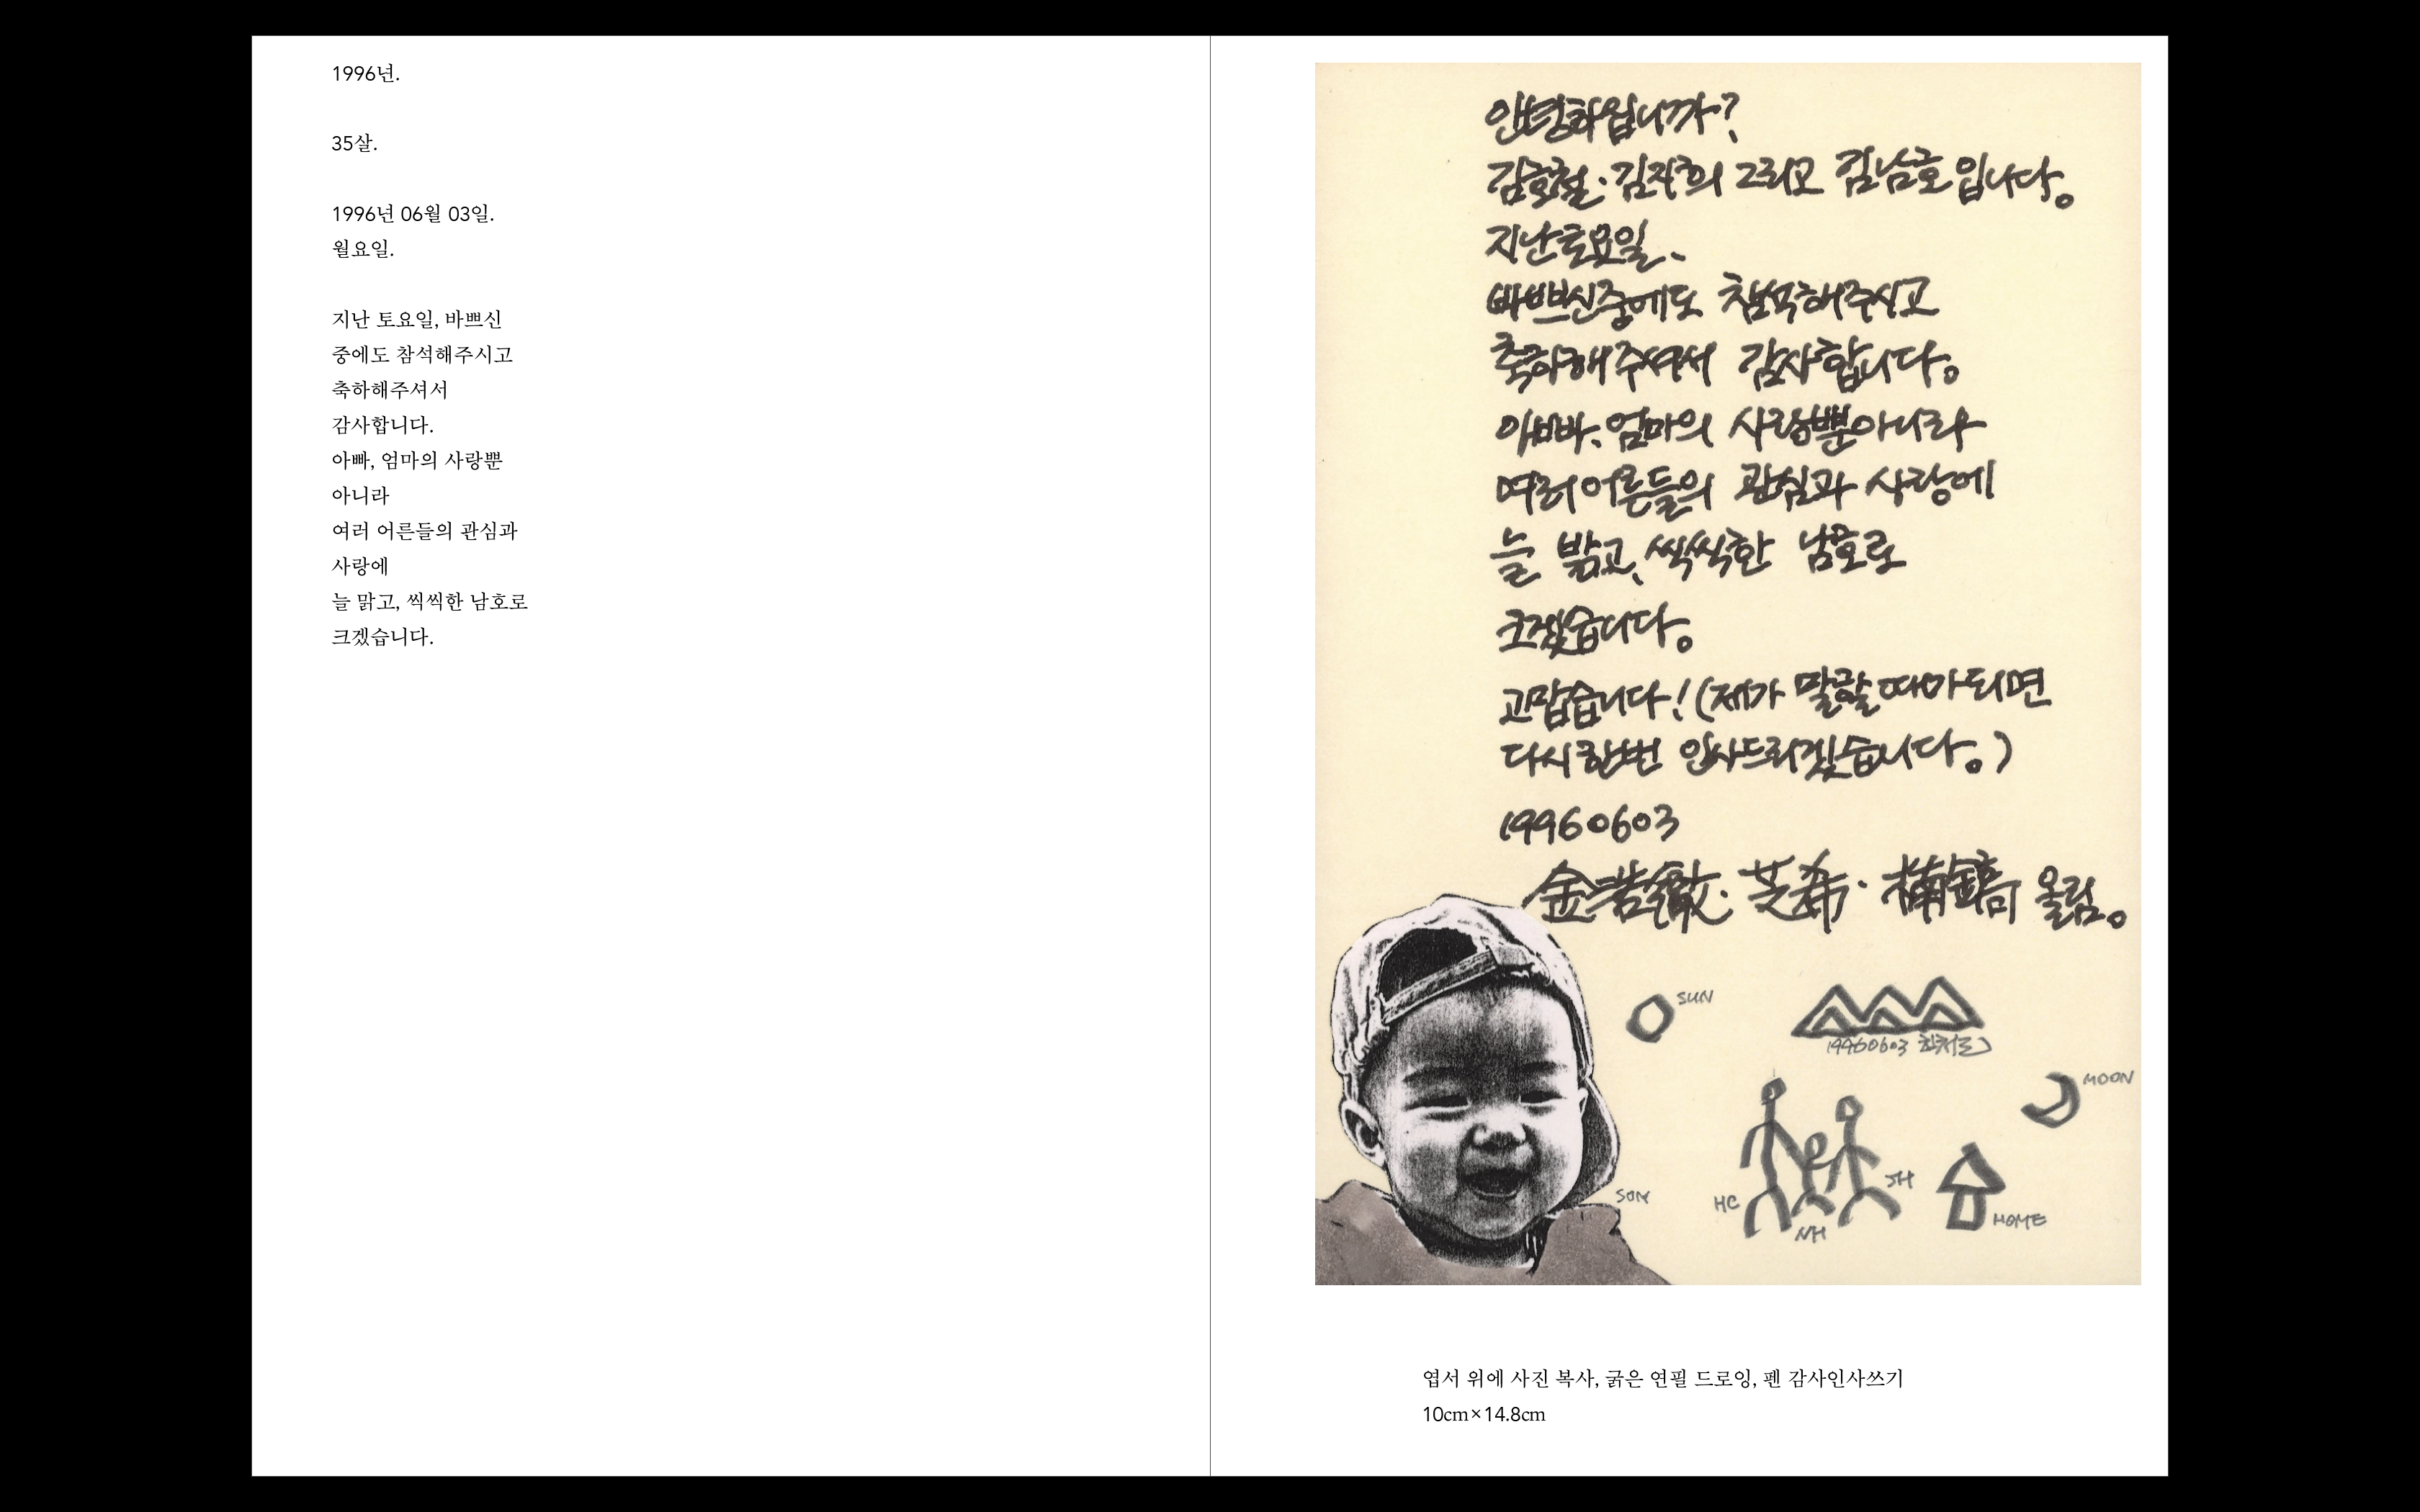 1996년.
35살.
1996년 06월 03일.
월요일.
지난 토요일, 바쁘신
중에도 참석해주시고
축하해주셔서
감사합니다.
아빠, 엄마의 사랑뿐
아니라
여러 어른들의 관심과
사랑에
늘 맑고, 씩씩한 남호로
크겠습니다.
안녕하십니까?
김희철·김지희 그리고 김남호입니다。
지난토요일、
바쁘신중에도 참석해주시고
축하해주셔서 감사합니다。
아빠、엄마의 사랑뿐아니라
여러어른들의 관심과 사랑에
늘 밝고、씩씩한 남호로
크겠습니다。
고맙습니다!(제가 말할때가되면
다시한번 인사드리겠습니다。)
19960603
金 · 芝希 · 올림。
SUN
19960603
MOON
SON
HC
NH
JH
HOME
엽서 위에 사진 복사, 굵은 연필 드로잉, 펜 감사인사쓰기
10cm×14.8cm